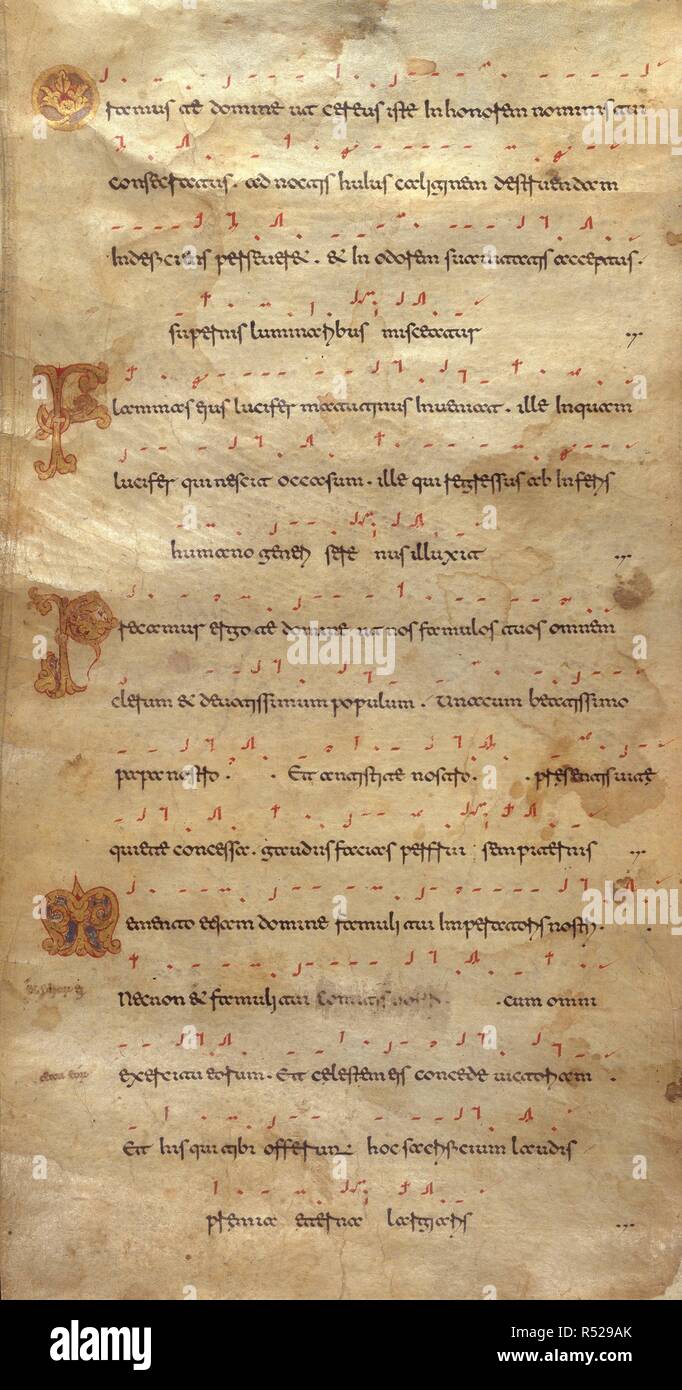 Oramus te domine ut cereus iste In honorem nominis tui
consecratus. ad noctis huius caliginem destruendam
Indeficiens perseueret. & In odorem suauitatis acceptus.
supernis luminaribus misceatur
Flammas eius lucifer matutinus Inueniat. ille Inquam
lucifer qui nescit occasum. ille qui regressus ab Inferis
humano generi sere nus illuxit
Precamur ergo te domine ut nos famulos tuos omnem
clerum & deuotissimum populum. Una cum beatissimo
papa nostro. Et antistite nostro. presentis uite
quiete concessa. gaudiis facias perfrui sempiternis
Memento etiam domine famuli tui Imperatoris nostri.
Necnon & famuli tui comitis nostri. cum omni
exercitu eorum. Et celestem eis concede uictoriam.
Et his qui tibi offerun hoc sacrificium laudis
premia eterna largiaris
alamy
Image ID: R529AK
www.alamy.com